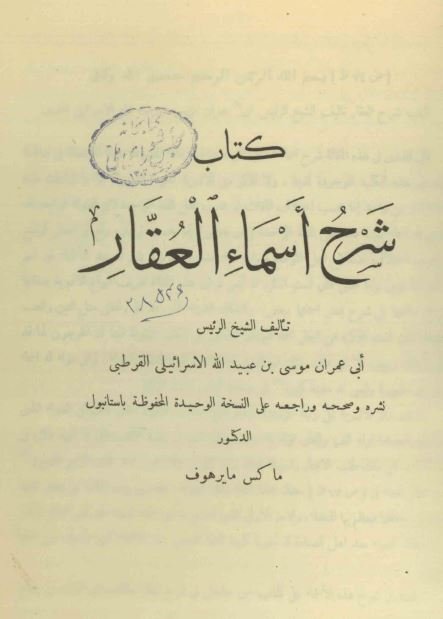 كتاب
شَرْحُ أَسْمَاءِ ٱلْعُقَّارِ
٢٨٥٢٦
تأليف الشيخ الرئيس
أبى عمران موسى بن عبيد الله الاسرائيلى القرطبى
نشره وصححه وراجعه على النسخة الوحيدة المحفوظة باستانبول
الدكتور
ماكس مايرهوف